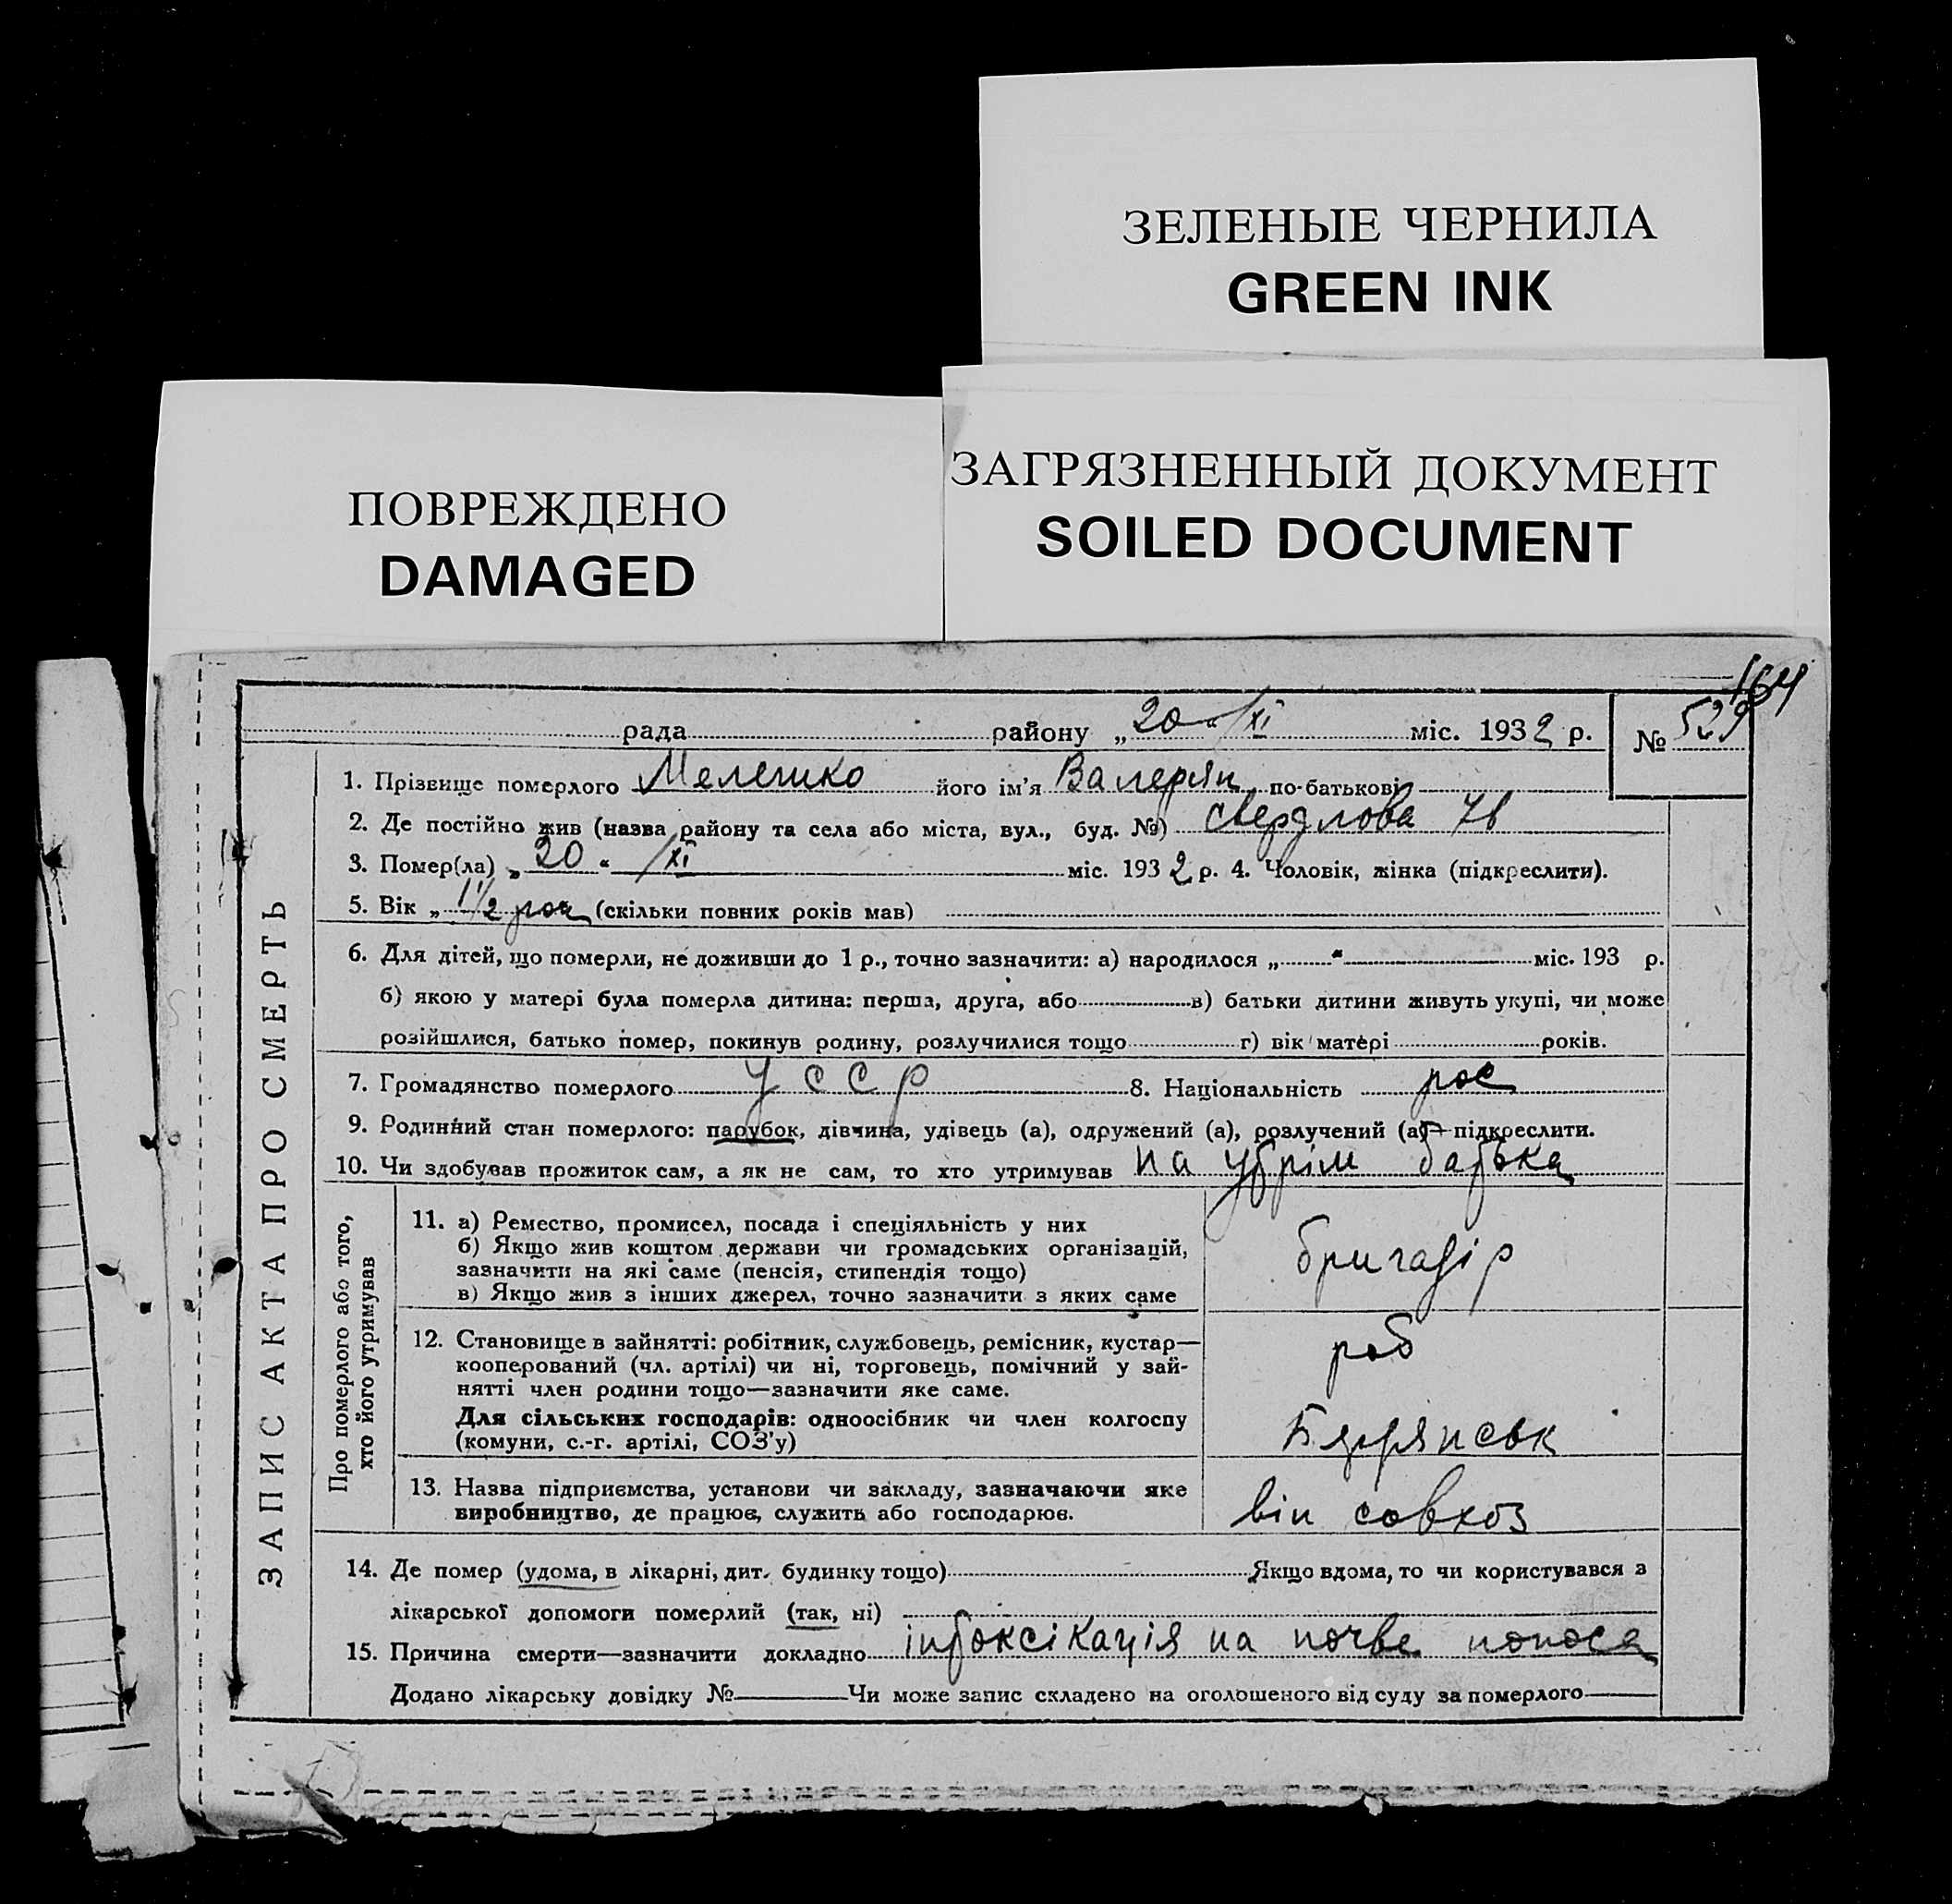 ЗЕЛЕНЫЕ ЧЕРНИЛА
GREEN INK
ПОВРЕЖДЕНО
DAMAGED
ЗАГРЯЗНЕННЫЙ ДОКУМЕНТ
SOILED DOCUMENT
164
рада району „20“/XI міс. 1932 р. № 529
ЗАПИС АКТА ПРО СМЕРТЬ
1. Прізвище померлого Мелешко його ім'я Валерян по-батькові
2. Де постійно жив (назва району та села або міста, вул., буд. №) Свердлова 7в
3. Помер(ла) „20“ /XI міс. 1932 р. 4. Чоловік, жінка (підкреслити).
5. Вік „1 1/2 рок (скільки повних років мав)
6. Для дітей, що померли, не доживши до 1 р., точно зазначити: а) народилося „ “ міс. 193 р.
б) якою у матері була померла дитина: перша, друга, або в) батьки дитини живуть укупі, чи може
розійшлися, батько помер, покинув родину, розлучилися тощо г) вік матері років.
7. Громадянство померлого УССР 8. Національність рос
9. Родинний стан померлого: парубок, дівчина, удівець (а), одружений (а), розлучений (а)—підкреслити.
10. Чи здобував прожиток сам, а як не сам, то хто утримував на утрім батька
Про померлого або того,
хто його утримував
11. а) Ремество, промисел, посада і спеціяльність у них
б) Якщо жив коштом держави чи громадських організацій,
зазначити на які саме (пенсія, стипендія тощо)
в) Якщо жив з інших джерел, точно зазначити з яких саме
бригадір
12. Становище в зайнятті: робітник, службовець, ремісник, кустар—
кооперований (чл. артілі) чи ні, торговець, помічний у зай-
нятті член родини тощо—зазначити яке саме.
роб
Для сільських господарів: одноосібник чи член колгоспу
(комуни, с.-г. артілі, СОЗ'у)
13. Назва підприємства, установи чи закладу, зазначаючи яке
виробництво, де працює, служить або господарює.
він совхоз
14. Де помер (удома, в лікарні, дит. будинку тощо) Якщо вдома, то чи користувався з
лікарської допомоги померлий (так, ні)
15. Причина смерти—зазначити докладно інтоксікація на почве поноса
Додано лікарську довідку № Чи може запис складено на оголошеного від суду за померлого